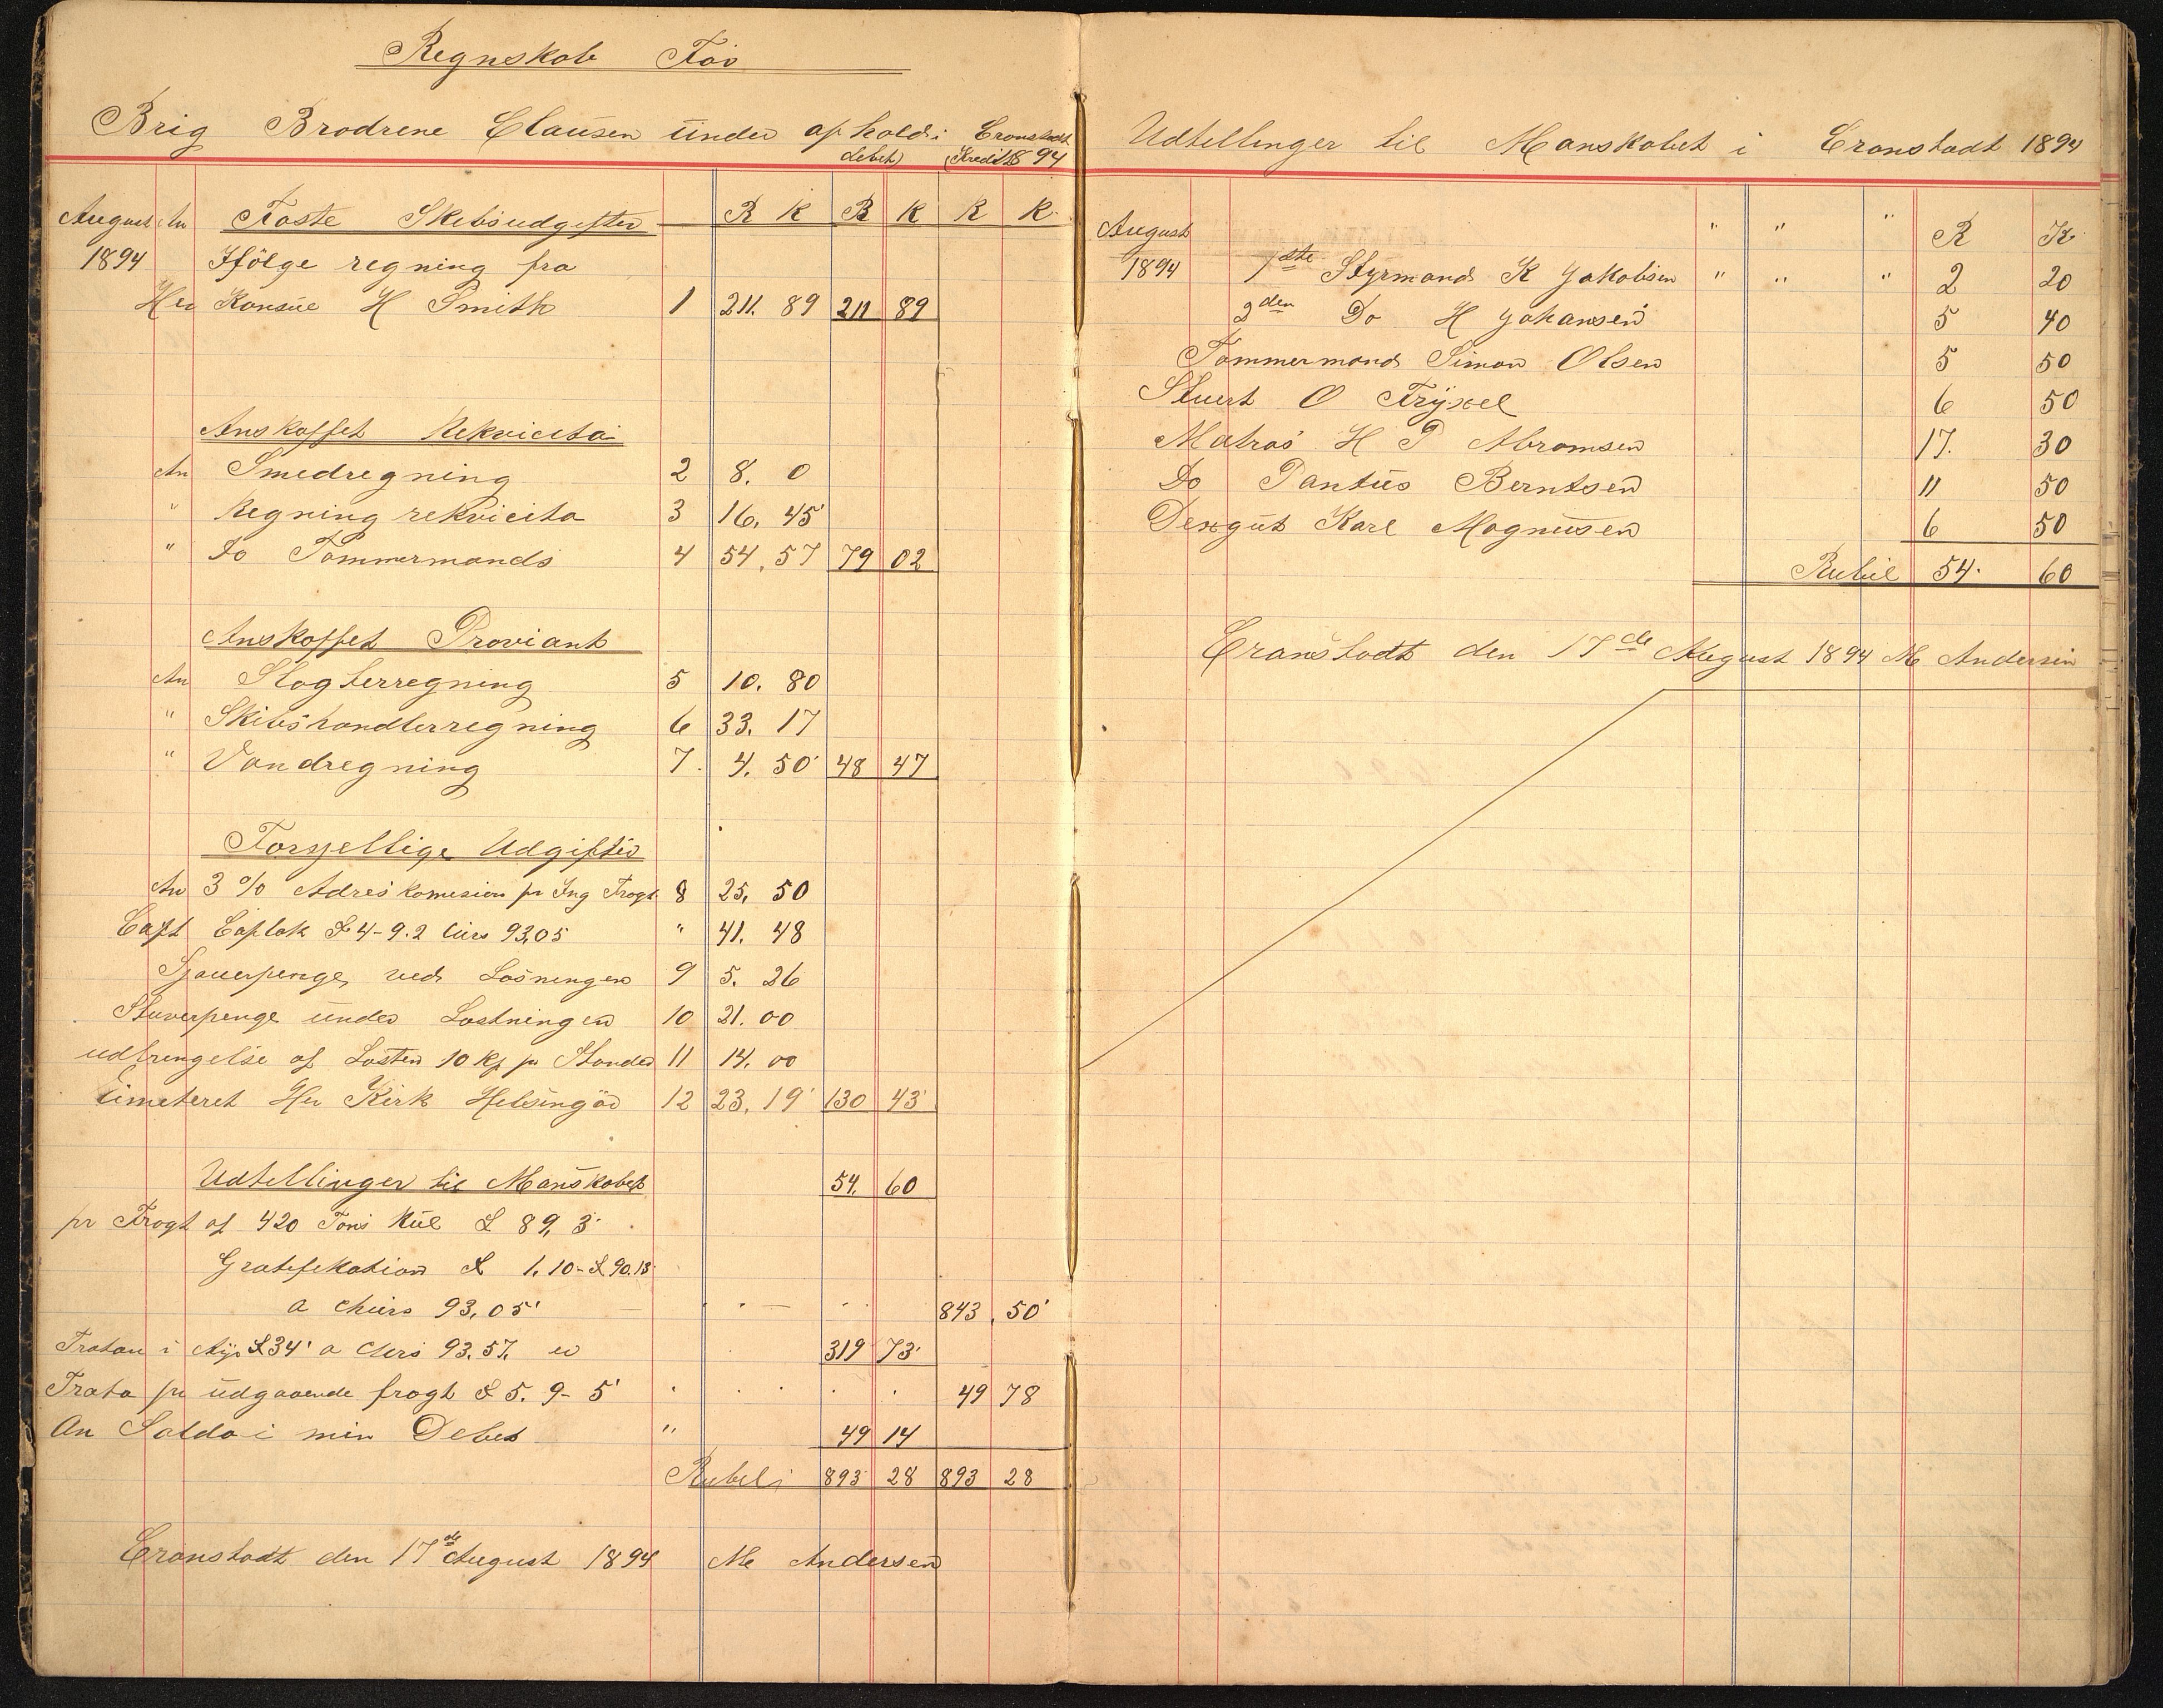 Regnskab For
Brig Brødrene Clausen under ophold i Cronstadt
debet Kredit 1894
August An Faste Skibsudgifter R K R K R K
1894 Ifölge regning fra
Her Konsul H Smith 1 211. 89 211 89
Anskaffet Rekvicita
An Smedregning 2 8. 0
" Regning rekvicita 3 16. 45
" Do Tømmermands 4 54. 57 79 02
Anskaffet Proviant
An Slagterregning 5 10. 80
" Skibshandlerregning 6 33. 17
" Vandregning 7 4. 50 48 47
Forsjellige Udgifter
An 3 % Adres komesion pr Ing Fragt 8 25. 50
Capt Caplak £ 4-9.2 Curs 93,05 " 41. 48
Sjauerpenge ved Losningen 9 5. 26
Stuverpenge under Lastningen 10 21. 00
udbringelse af Lasten 10 Kp pr Stander 11 14. 00
Her Kirk Helsingör 12 23. 19 130 43
Udtellinger til Manskabet 54. 60
pr Fragt af 420 Tons Kul £ 89, 3
Gratefikation £ 1. 10 - £ 90.13
a Churs 93,05 843. 50
Tratan i £ 34 a Churs 93.57. 319 73
Trata pr udgaaende fragt £ 5. 9- 5 49 78
An Saldo i min Debet " 49 14
Rubel 893 28 893 28
Cronstadt den 17de August 1894 M Andersen
Udtellinger til Manskabet i Cronstadt 1894
August " " " R K
1894 1ste Styrmand K Jakobsen " " " 2 20
2den Do H Johansen 5 40
Tømmermand Simon Olsen 5 50
Stuert O Fryxel 6 50
Matros H P Abramsen 17. 30
Do Pantus Berntsen 11 50
Dexgut Karl Magnusen 6 50
Rubel 54. 60
Cranstadt den 17de August 1894 M Andersen